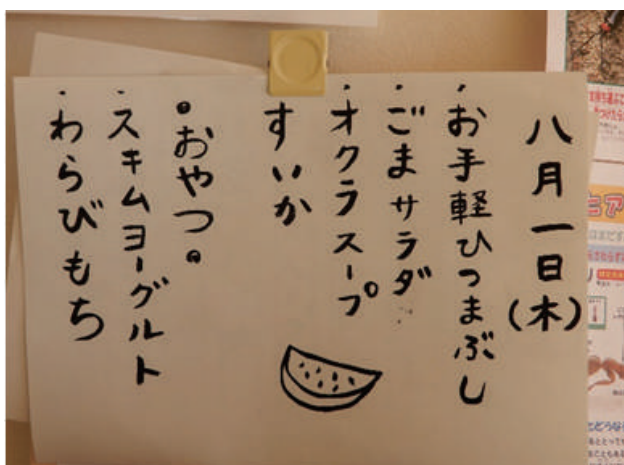 八月一日(木)
・お手軽ひつまぶし
・ごまサラダ
・オクラスープ
・すいか
◎おやつ◎
・スキムヨーグルト
・わらびもち